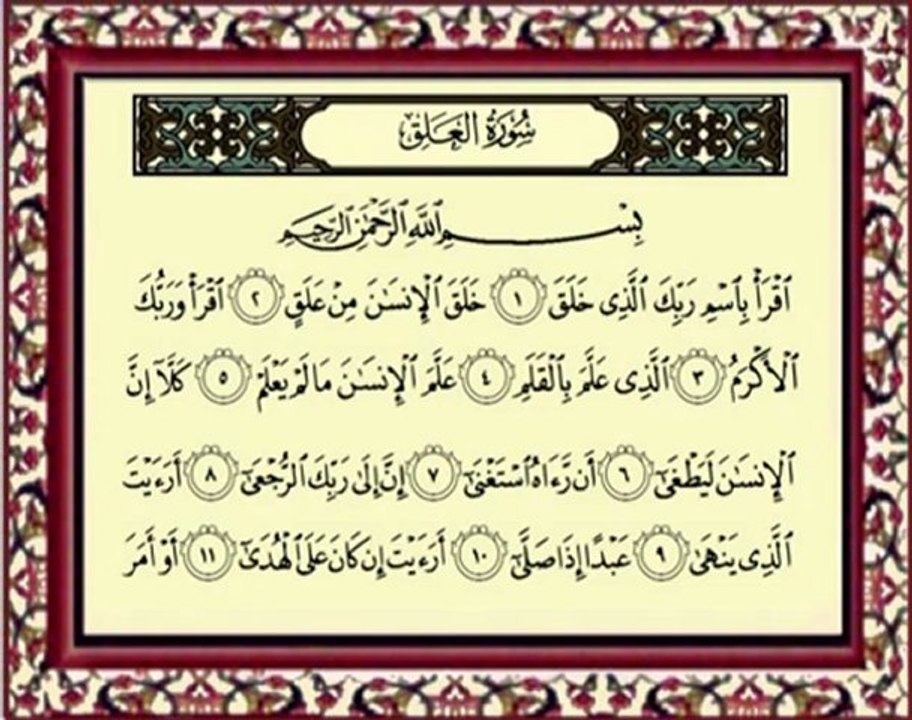 سُورَةُ الْعَلَقِ
بِسْمِ اللَّهِ الرَّحْمَٰنِ الرَّحِيمِ
ٱقْرَأْ بِٱسْمِ رَبِّكَ ٱلَّذِى خَلَقَ ١ خَلَقَ ٱلْإِنسَٰنَ مِنْ عَلَقٍ ٢ ٱقْرَأْ وَرَبُّكَ
ٱلْأَكْرَمُ ٣ ٱلَّذِى عَلَّمَ بِٱلْقَلَمِ ٤ عَلَّمَ ٱلْإِنسَٰنَ مَا لَمْ يَعْلَمْ ٥ كَلَّآ إِنَّ
ٱلْإِنسَٰنَ لَيَطْغَىٰٓ ٦ أَن رَّءَاهُ ٱسْتَغْنَىٰٓ ٧ إِنَّ إِلَىٰ رَبِّكَ ٱلرُّجْعَىٰٓ ٨ أَرَءَيْتَ
ٱلَّذِى يَنْهَىٰ ٩ عَبْدًا إِذَا صَلَّىٰٓ ١٠ أَرَءَيْتَ إِن كَانَ عَلَى ٱلْهُدَىٰٓ ١١ أَوْ أَمَرَ